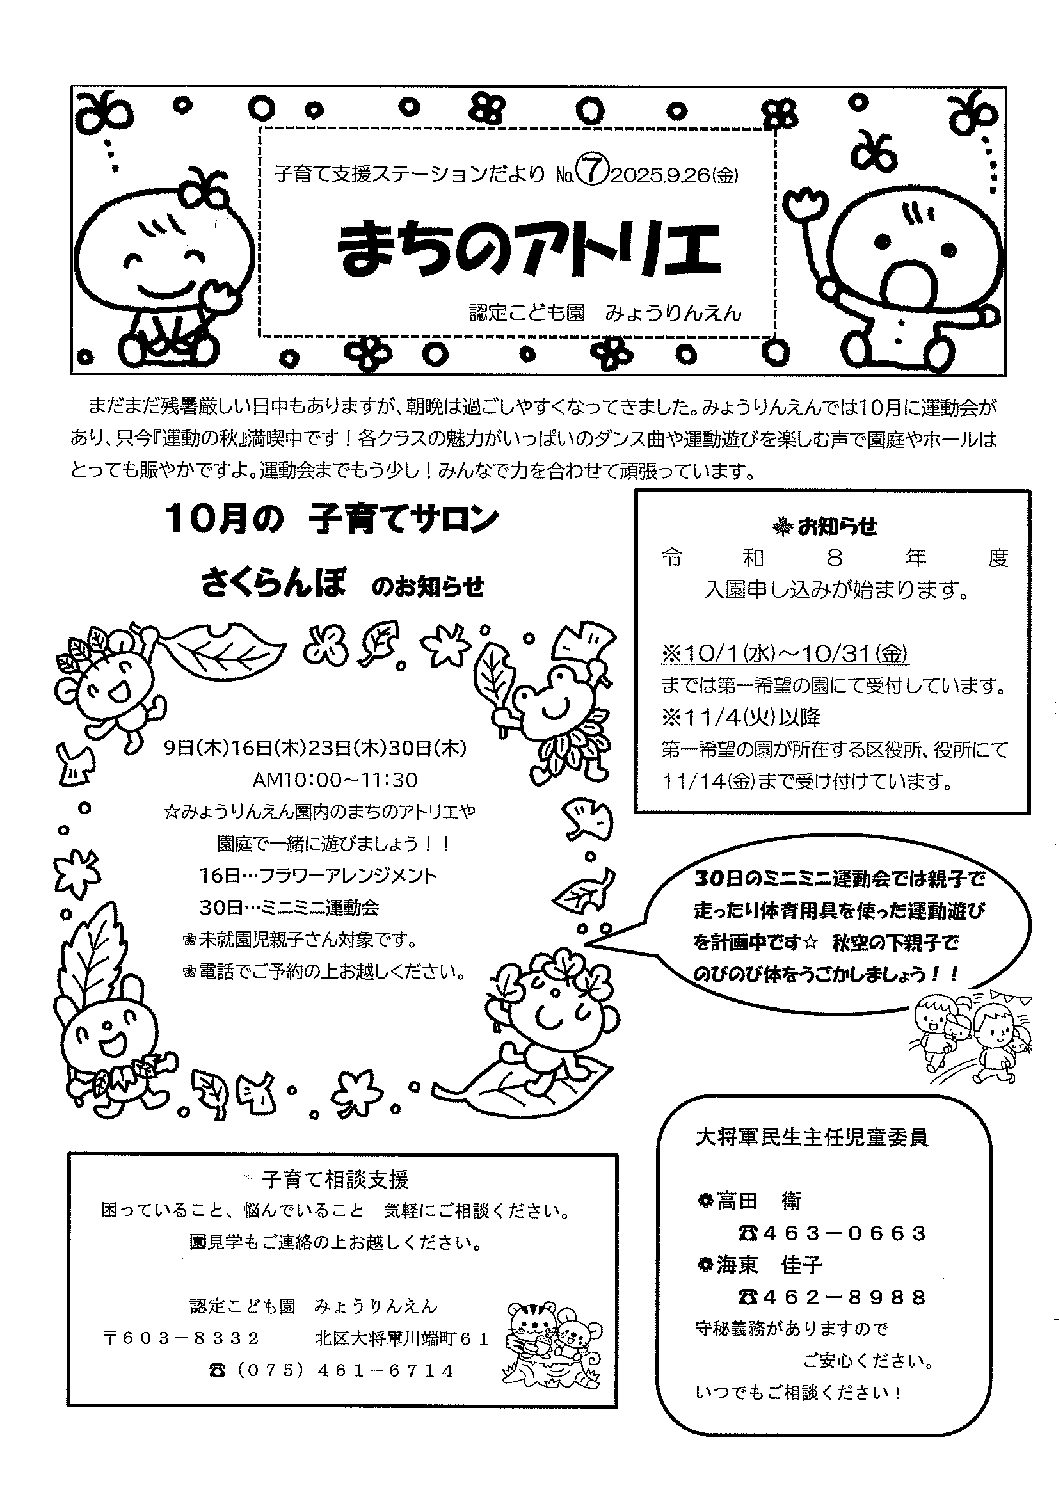 子育て支援ステーションだより №⑦2025.9.26(金)
まちのアトリエ
認定こども園　みょうりんえん
まだまだ残暑厳しい日中もありますが、朝晩は過ごしやすくなってきました。みょうりんえんでは10月に運動会が
あり、只今『運動の秋』満喫中です！各クラスの魅力がいっぱいのダンス曲や運動遊びを楽しむ声で園庭やホールは
とっても賑やかですよ。運動会までもう少し！みんなで力を合わせて頑張っています。
10月の　子育てサロン
さくらんぼ　のお知らせ
9日(木)16日(木)23日(木)30日(木)
AM10:00～11:30
☆みょうりんえん園内のまちのアトリエや
園庭で一緒に遊びましょう！！
16日…フラワーアレンジメント
30日…ミニミニ運動会
❀未就園児親子さん対象です。
❀電話でご予約の上お越しください。
お知らせ
令和8年度
入園申し込みが始まります。
※10/1(水)～10/31(金)
までは第一希望の園にて受付しています。
※11/4(火)以降
第一希望の園が所在する区役所、役所にて
11/14(金)まで受け付けています。
30日のミニミニ運動会では親子で
走ったり体育用具を使った運動遊び
を計画中です☆　秋空の下親子で
のびのび体をうごかしましょう！！
子育て相談支援
困っていること、悩んでいること　気軽にご相談ください。
園見学もご連絡の上お越しください。
認定こども園　みょうりんえん
〒603－8332　　北区大将軍川端町61
☎(075) 461－6714
大将軍民生主任児童委員
❁高田　衛
☎463－0663
❁海東　佳子
☎462－8988
守秘義務がありますので
ご安心ください。
いつでもご相談ください！